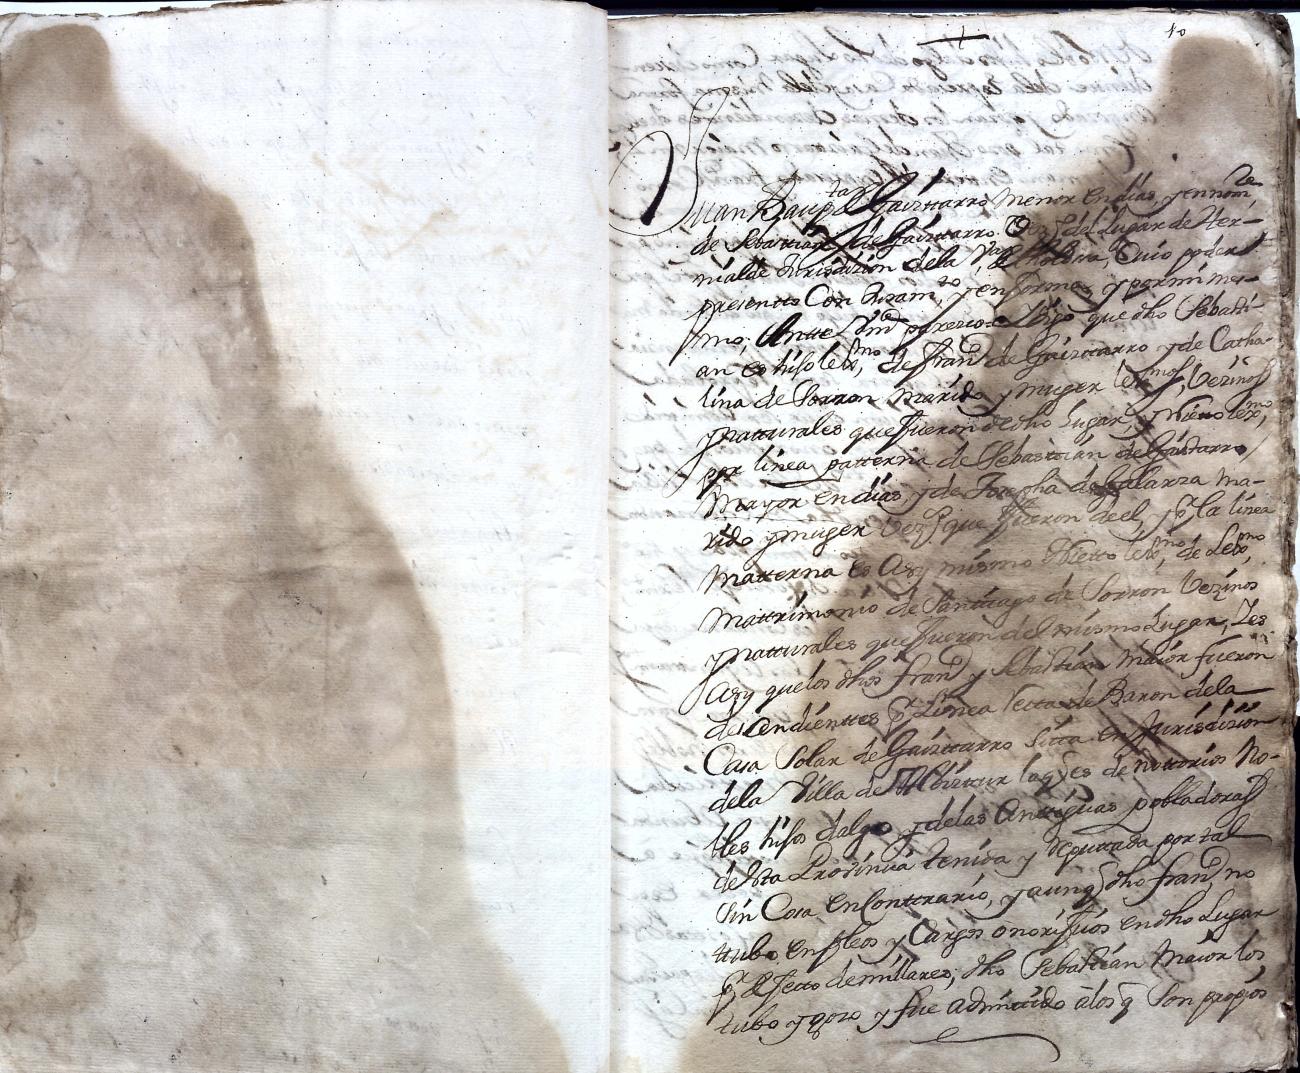 10
Juan Baup.ta de Gaiztarro Menor en días y en nom.e
de Sebastian de Gaiztarro Vez.o del Lugar de Her-
nialde Jurisdizion dela V.a de Tolosa, Cuio poder
presentto Con Juram.to y en forma, y por mi mes-
mo, Antte Vmd parezco Digo que dho Sebasti-
an es hijo lex.mo de fran.co de Gaiztarro y de Catha-
lina de Sorron Marido y muger lex.mos, Vezinos
y natturales que fueron de dho Lugar, y Nieto lex.mo
por línea patterna de Sebastián de Gaiztarro
Mayor en días y de Josepha de Galarza Ma-
rido y muger Vez.os que fueron de el, y p.r la línea
matterna es Asy mismo Nietto lex.mo de Lex.mo
Mattrimonio de Santiago de Sorron Vezinos
y natturales que fueron del mismo Lugar, Y es
Asy quelos dhos fran.co y Sebastián maior fueron
descendienttes p.r Línea recta de Baron dela
Casa Solar de Gaiztarro sitta en Jurisdizion
dela Villa de Albiztur la q.e es de nottorios No-
bles hijos dalgo y delas Anttiguas pobladoras
de esta Provinzia tenida y reputada por tal
sin Cosa en Conttrario, y aunq.e dho fran.co no
ttubo enpleos y Cargos onoríficos en dho Lugar
p.r defecto de millares, dho Sebastián Maior los
tubo y gozo y fue admitido àlos q.e son propios